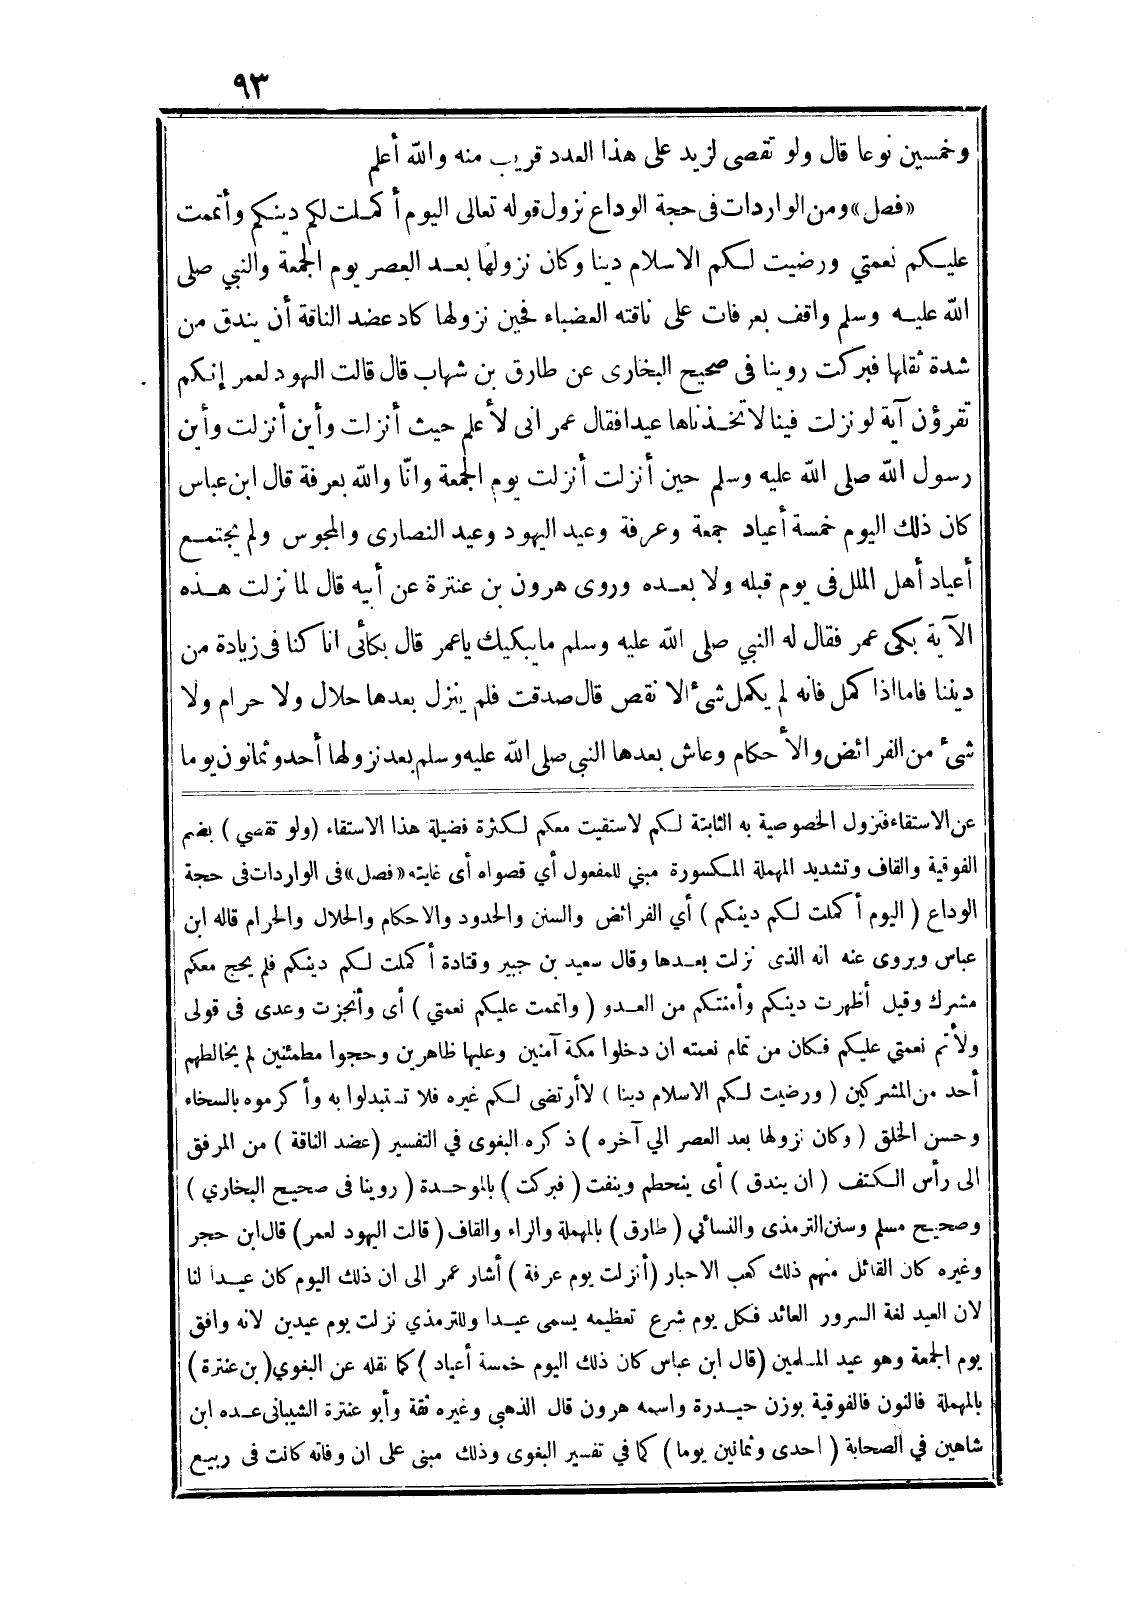 ٩٣
وخمسين نوعا قال ولو تقصى لزيد على هذا العدد قريب منه والله أعلم
«فصل» ومن الواردات فى حجة الوداع نزول قوله تعالى اليوم أكملت لكم دينكم وأتممت
عليكم نعمتي ورضيت لكم الاسلام دينا وكان نزولها بعد العصر يوم الجمعة والنبي صلى
الله عليه وسلم واقف بعرفات على ناقته العضباء فحين نزولها كاد عضد الناقة أن يندق من
شدة ثقلها فبركت روينا فى صحيح البخارى عن طارق بن شهاب قال قالت اليهود لعمر إنكم
تقرؤن آية لو نزلت فينا لاتخذناها عيدا فقال عمر انى لأعلم حيث أنزلت وأين أنزلت وأين
رسول الله صلى الله عليه وسلم حين أنزلت أنزلت يوم الجمعة وانّا والله بعرفة قال ابن عباس
كان ذلك اليوم خمسة أعياد جمعة وعرفة وعيد اليهود وعيد النصارى والمجوس ولم يجتمع
أعياد أهل الملل فى يوم قبله ولا بعده وروى هرون بن عنترة عن أبيه قال لما نزلت هذه
الآية بكى عمر فقال له النبي صلى الله عليه وسلم مايبكيك ياعمر قال بكائى انا كنا فى زيادة من
ديننا فاما اذا كمل فانه لم يكمل شئ الا نقص قال صدقت فلم ينزل بعدها حلال ولا حرام ولا
شئ من الفرائض والأحكام وعاش بعدها النبى صلى الله عليه وسلم بعد نزولها أحد وثمانون يوما
عن الاستقاء فتزول الخصوصية به الثابتة لكم لاستقيت معكم لكثرة فضيلة هذا الاستقاء (ولو تقصي) بضم
الفوقية والقاف وتشديد المهملة المكسورة مبني للمفعول أي قصواه أى غايته «فصل» فى الواردات فى حجة
الوداع (اليوم أكملت لكم دينكم) أي الفرائض والسنن والحدود والاحكام والحلال والحرام قاله ابن
عباس ويروى عنه انه الذى نزلت بعدها وقال سعيد بن جبير وقتادة أكملت لكم دينكم فلم يحج معكم
مشرك وقيل أظهرت دينكم وأمنتكم من العدو (واتممت عليكم نعمتي) أى وأنجزت وعدى فى قولى
ولأتم نعمتي عليكم فكان من تمام نعمته ان دخلوا مكة آمنين وعليها ظاهرين وحجوا مطمئنين لم يخالطهم
أحد من المشركين (ورضيت لكم الاسلام دينا) لاأرتضى لكم غيره فلا تستبدلوا به وأكرموه بالسخاء
وحسن الخلق (وكان نزولها بعد العصر الي آخره) ذكره البغوى في التفسير (عضد الناقة) من المرفق
الى رأس الكتف (ان يندق) أى ينحطم وينفت (فبركت) بالموحدة (روينا فى صحيح البخاري)
وصحيح مسلم وسنن الترمذى والنسائي (طارق) بالمهملة والراء والقاف (قالت اليهود لعمر) قال ابن حجر
وغيره كان القائل منهم ذلك كعب الاحبار (أنزلت يوم عرفة) أشار عمر الى ان ذلك اليوم كان عيدا لنا
لان العيد لغة السرور العائد فكل يوم شرع تعظيمه يسمى عيدا وللترمذي نزلت يوم عيدين لانه وافق
يوم الجمعة وهو عيد المسلمين (قال ابن عباس كان ذلك اليوم خمسة أعياد) كما نقله عن البغوي (بن عنترة)
بالمهملة فالنون فالفوقية بوزن حيدرة واسمه هرون قال الذهبى وغيره ثقة وأبو عنترة الشيبانى عده ابن
شاهين في الصحابة (احدى وثمانين يوما) كما في تفسير البغوى وذلك مبنى على ان وفاته كانت فى ربيع